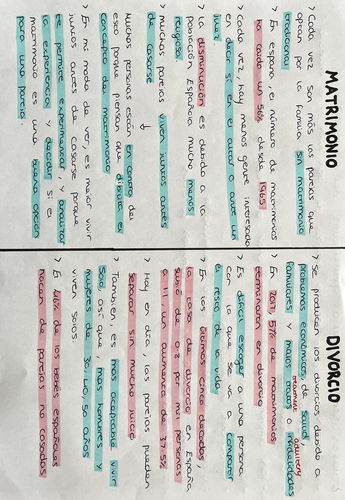 MATRIMONIO
> Cada vez son más las parejas que
optan por la familia sin matrimonio
tradicional
> En españa, el número de matrimonios
ha caído un 56% desde 1965
> Cada vez, hay menos gente interesada
en decir sí en el altar o ante un
juez
> la disminución es debido a la
población Española mucho menos
religiosa
> muchas parejas viven juntos antes
de casarse
Muchas personas están en contra de
esto porque piensan que dibulta en
concepto de matrimonio
> En mi modo de ver, es mejor vivir
juntos antes de casarse porque
te permite experimentar, y analizar
la experiencia y decidir si el
matrimonio es una buena opción
para una pareja.
DIVORCIO
> se producen los divorcios debido a
problemas económicos de salud,
familiares y malos tratos o infidelidades
mistreat adultery
> En 2017, 57% de matrimonios
terminaron en divorcio
> Es difícil escoger a una persona
con la que se va a compartir
el resto de su vida
> En los últimos cinco décadas,
la tasa de divorcio en España
subió de 0.8 por mil personas
a 1.1, un aumento de 37.5%
> Hoy en día, las parejas pueden
separar sin mucho juicio
> También es más aceptable vivir
solo así que, más hombres y
mujeres de 30, 40, 50 años
viven solos.
> El 46% de los bebés españoles
nacen de parejas no casadas